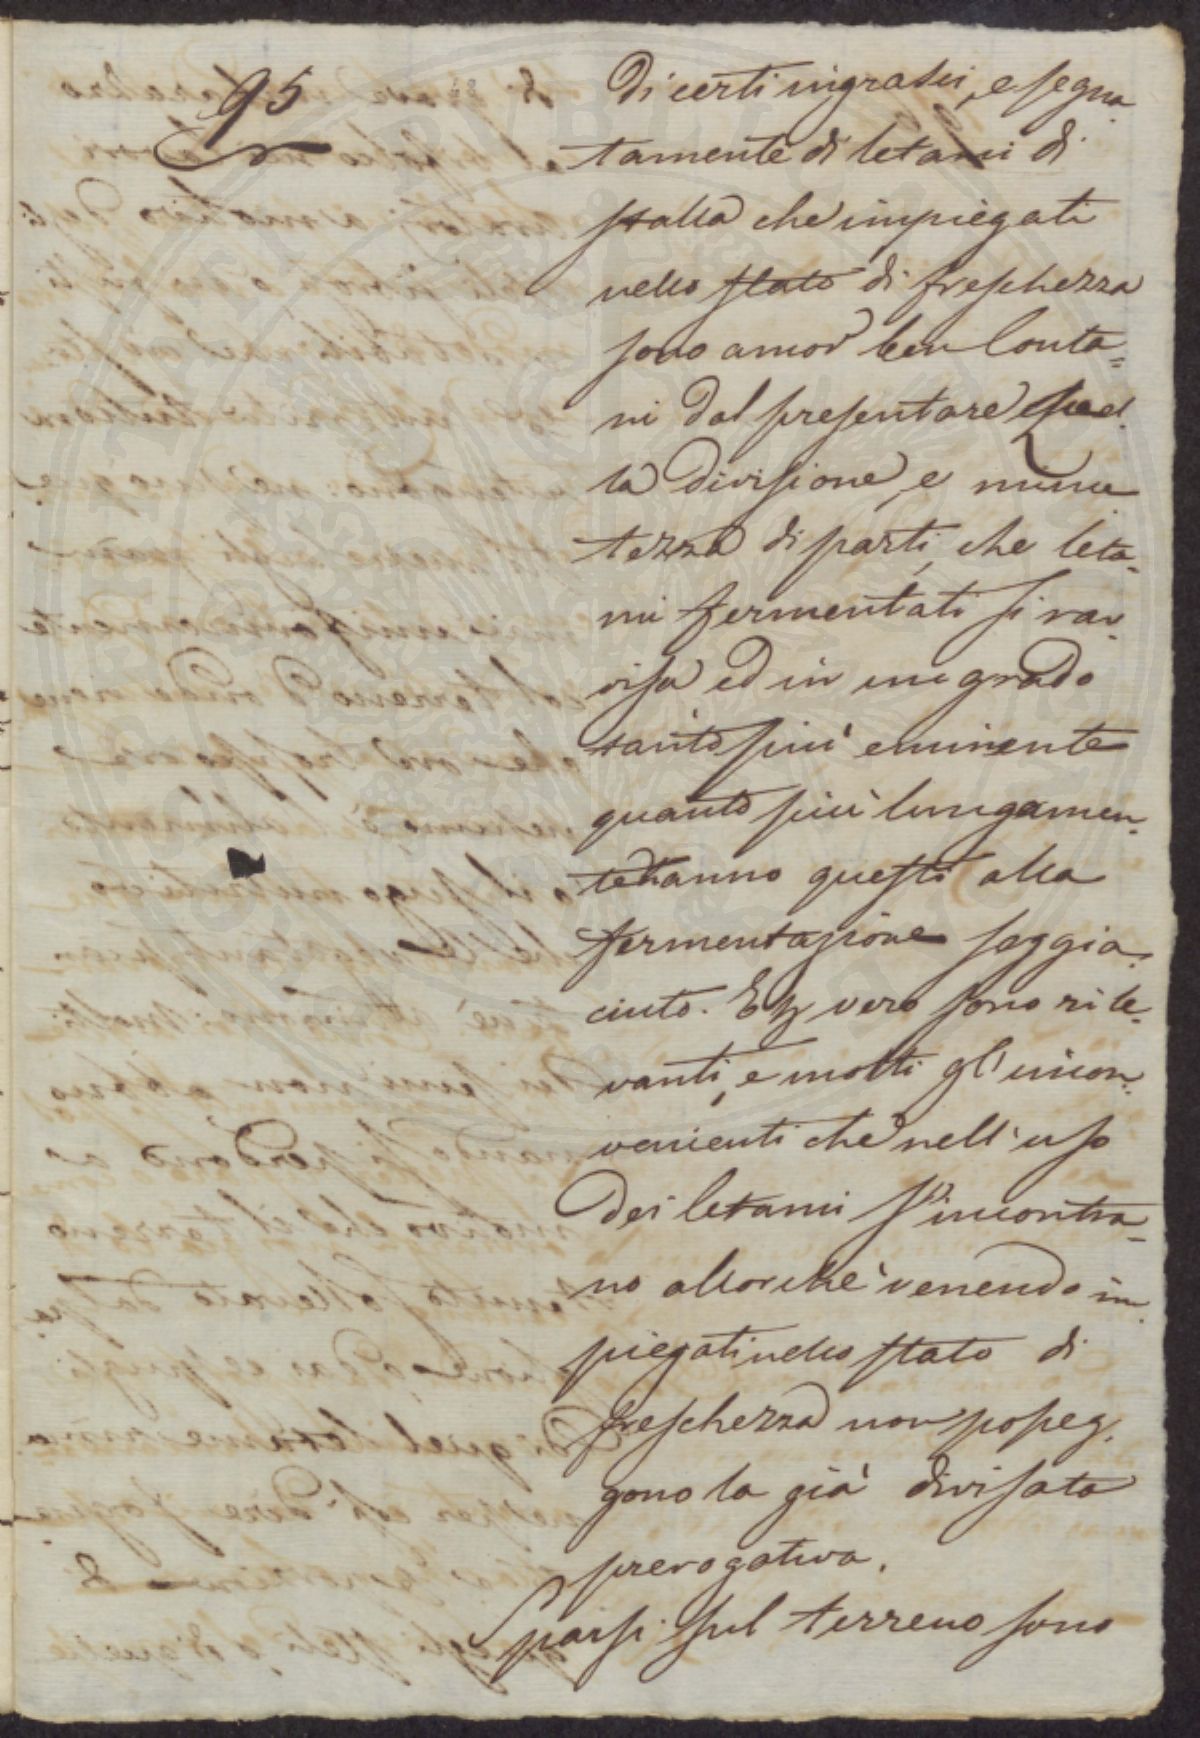 95
di certi ingrassi, e segna
tamente di letami di
stalla che impiegati
nello stato di freschezza
sono ancor ben lonta=
ni dal presentare quel
la divisione, e minu
tezza di parti, che leta-
mi fermentati si rav-
visa ed in un grado
tanto più eminente
quanto più lungamen-
te hanno questi alla
fermentazione soggia-
ciuto. E vero sono rile-
vanti, e molti gl'incon-
venienti che nell'uso
dei letami s'incontra-
no allorchè venendo im
piegati nello stato di
freschezza non posseg-
gono la già divisata
prerogativa.
Sparsi sul terreno sono